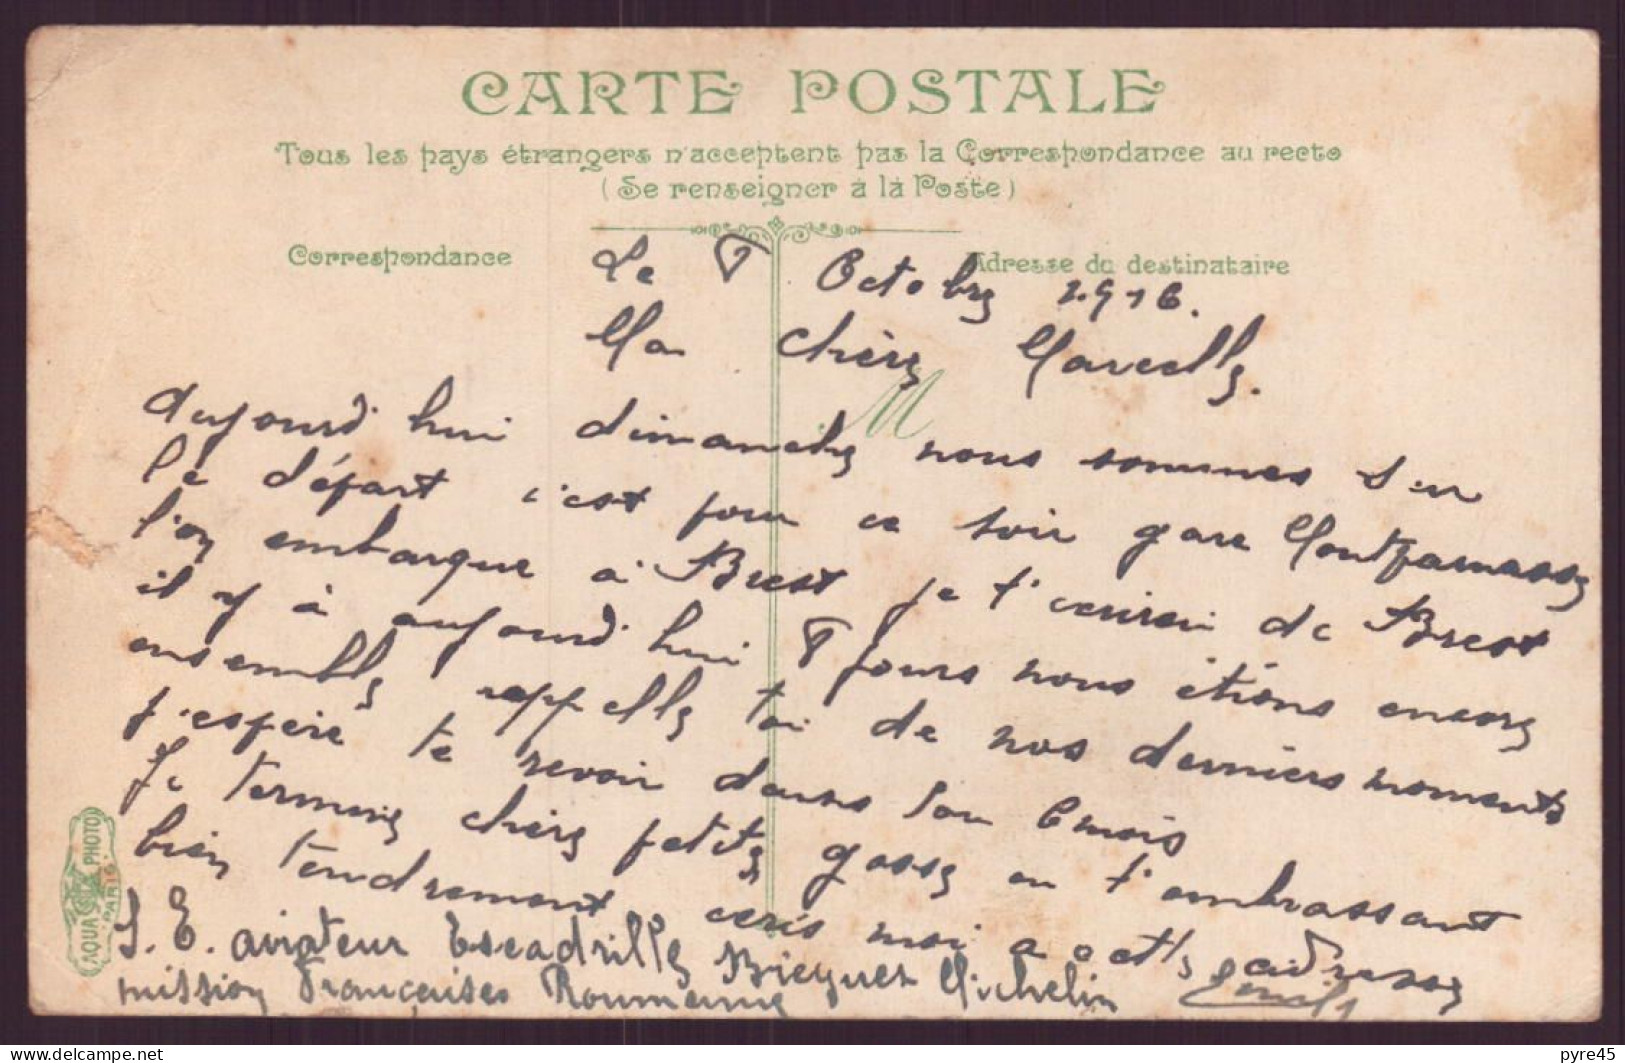 CARTE POSTALE
Tous les pays étrangers n'acceptent pas la Correspondance au recto
(Se renseigner à la Poste)
Correspondance
Adresse du destinataire
Le Octobre 1916.
Ma chère Marcelle.
aujourd'hui dimanche nous sommes sur
le départ c'est pour ce soir gare Montparnasse
l'on embarque a Brest je t'ecrirai de Brest
il y à aujourd'hui jours nous étions encore
ensemble rappelle toi de nos derniers moments
j'espère te revoir dans 6 mois
Je termine chère petite gosse en t'embrassant
bien tendrement ecris moi a cette adresse
S. E. aviateur Escadrille Breguet Michelin
mission Françaises Roumanie
AQUA PHOTO PARIS
delcampe.net
pyre45